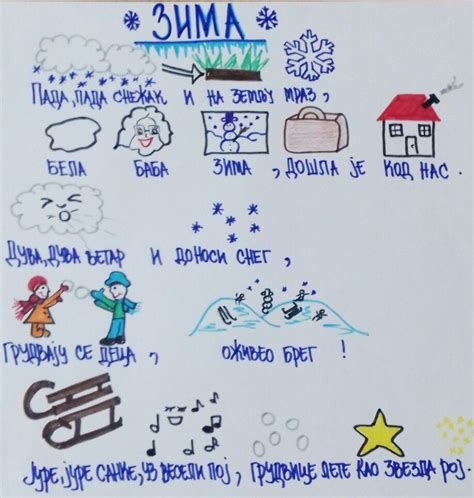 ЗИМА
ПАДА, ПАДА СНЕЖАК И НА ЗЕМЉУ МРАЗ,
БЕЛА БАБА ЗИМА, ДОШЛА ЈЕ КОД НАС.
ДУВА, ДУВА ВЕТАР И ДОНОСИ СНЕГ,
ГРУДВАЈУ СЕ ДЕЦА, ОЖИВЕО БРЕГ!
ЈУРЕ, ЈУРЕ САНКЕ, УЗ ВЕСЕЛИ ПОЈ, ГРУДВИЦЕ ЛЕТЕ КАО ЗВЕЗДА РОЈ.